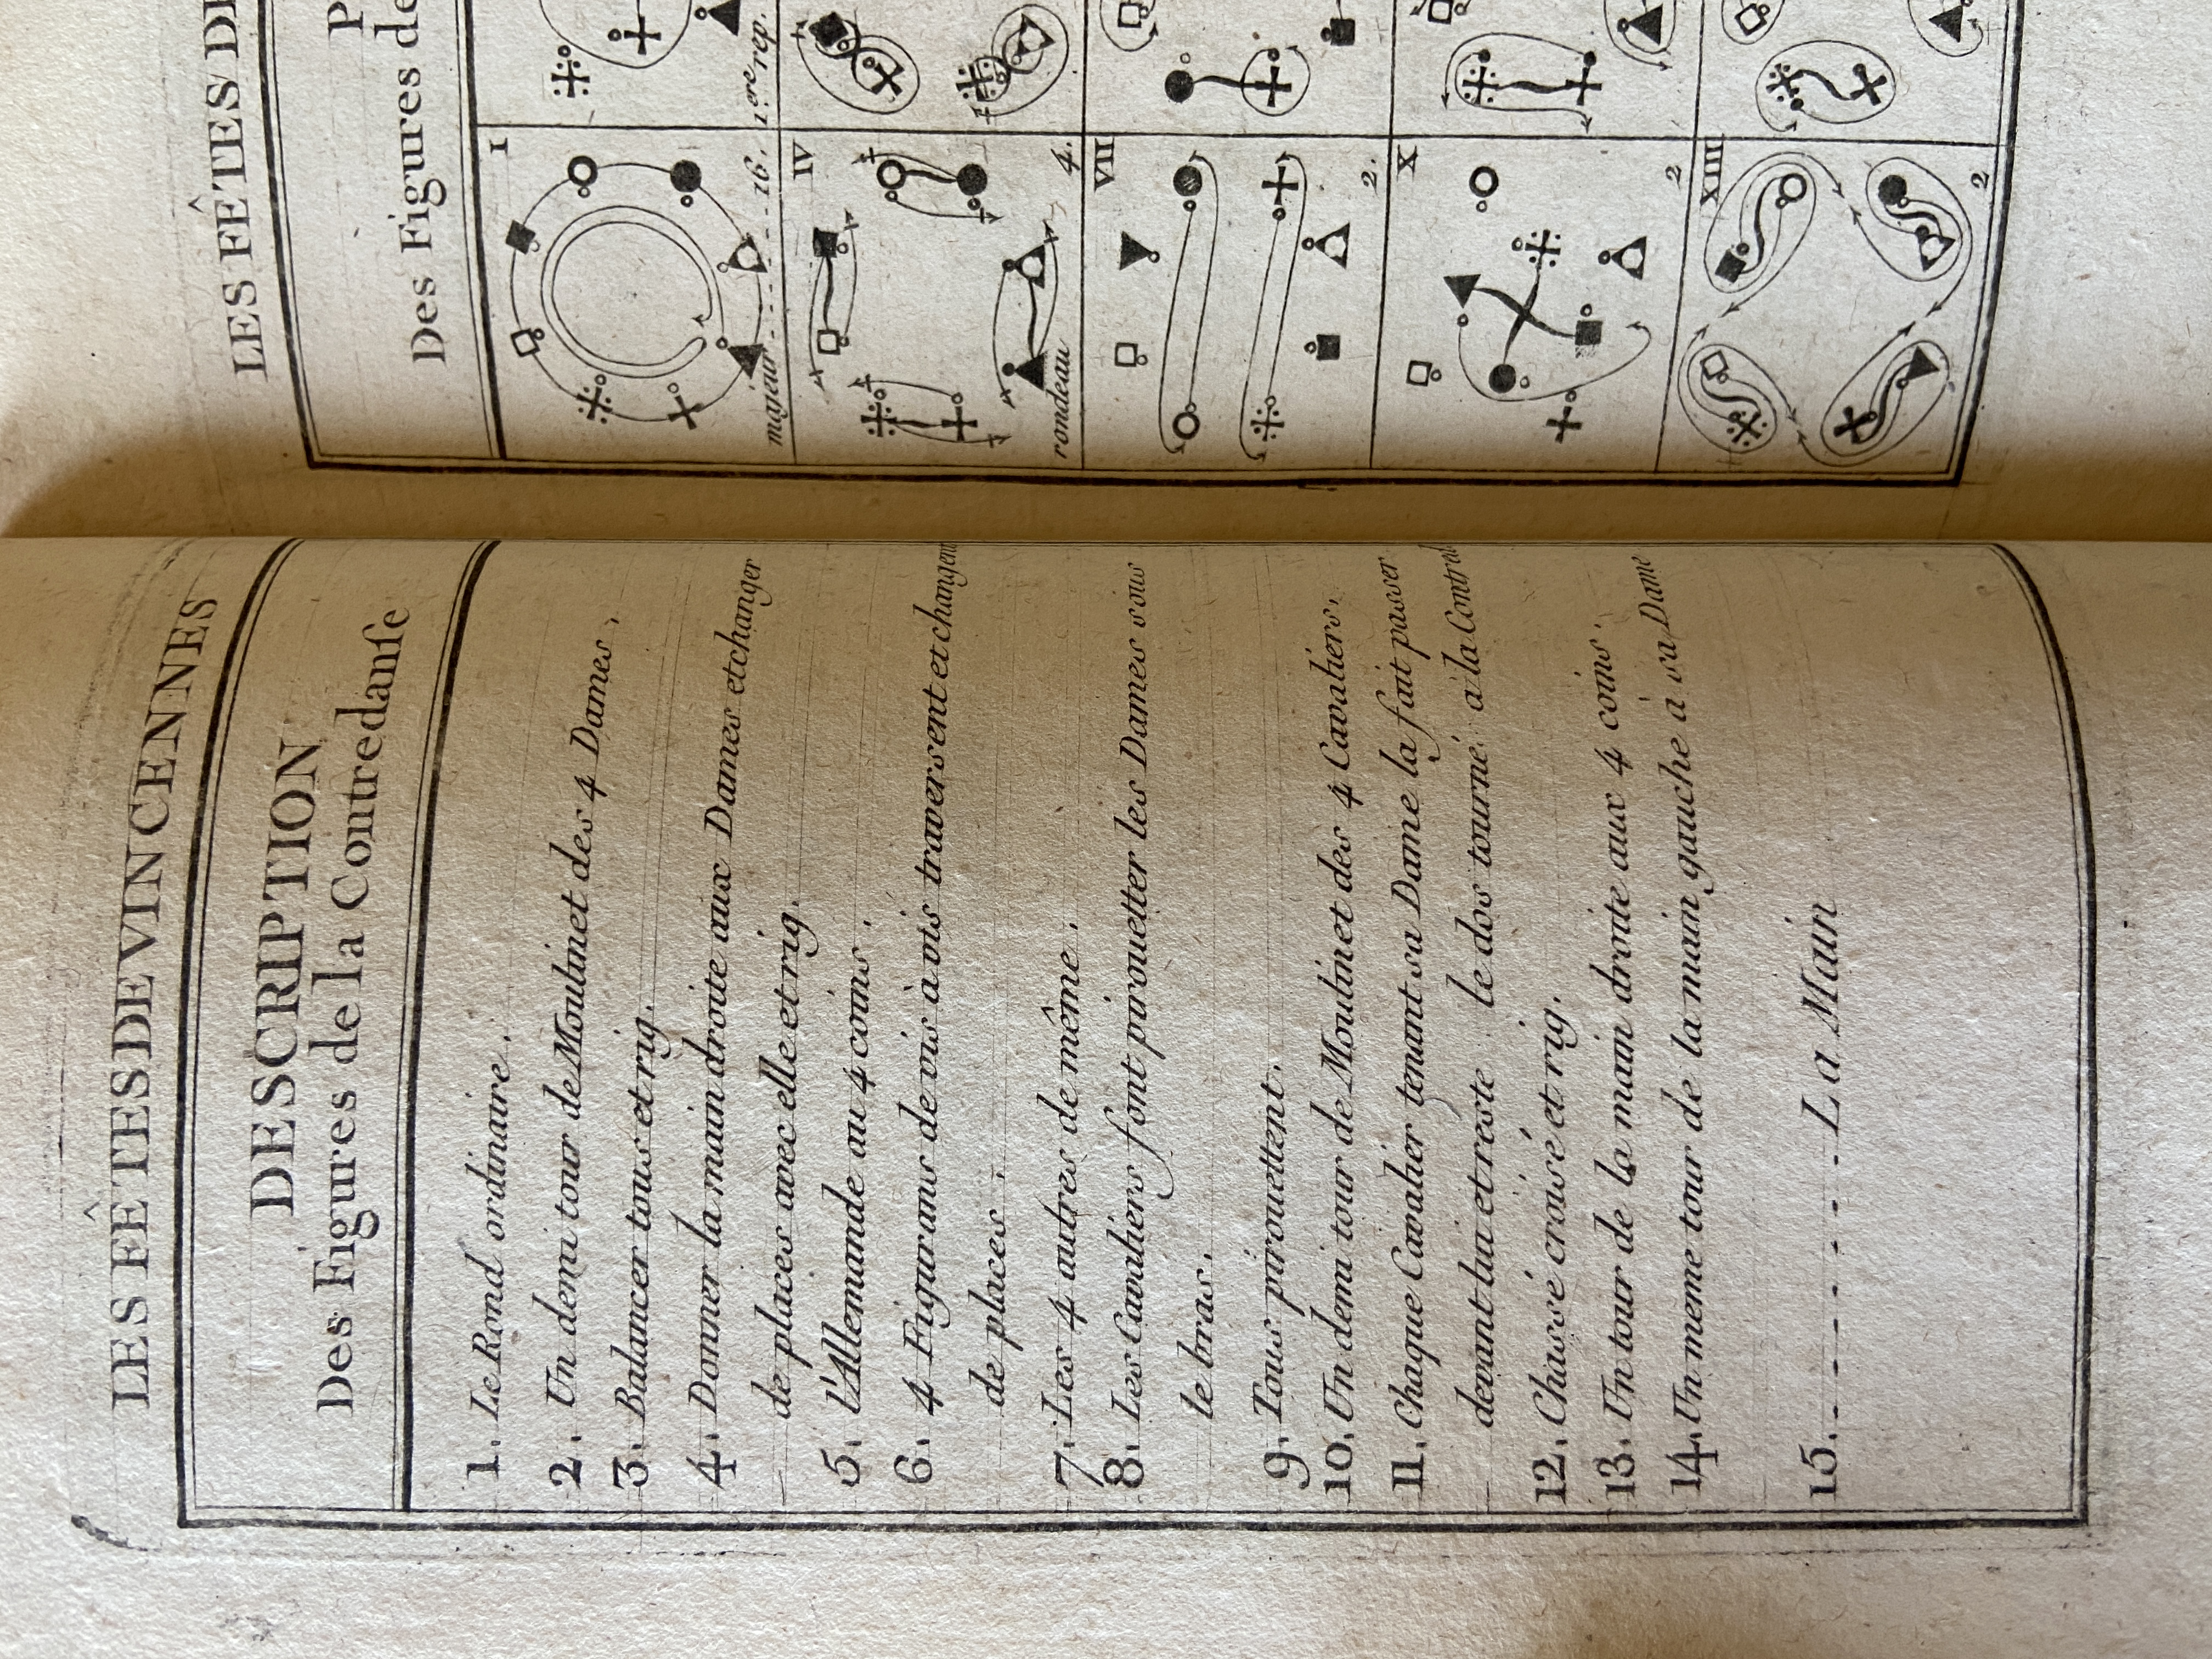 LES FÊTES DE VINCENNES
DESCRIPTION
Des Figures de la Contredanſe
1. Le Rond ordinaire.
2. Un demi tour de Moulinet des 4 Dames.
3. Balancer tous et rig.
4. Donner la main droite aux Dames et changer
de places avec elle et rig.
5. l'Allemande au 4 coins.
6. 4 Figurans de vis à vis traversent et changent
de places.
7. Les 4 autres de même.
8. Les Cavaliers font pirouetter les Dames sous
le bras.
9. Tous pirouettent.
10. Un demi tour de Moulinet des 4 Cavaliers.
11. Chaque Cavalier tenant sa Dame la fait passer
devant lui et reste le dos tourné à la Contred
12. Chassé croisé et rig.
13. Un tour de la main droite aux 4 coins.
14. Un meme tour de la main gauche à sa Dame
15. La Main
LES FÊTES DE
P
Des Figures de
I
majeur 16.
1.ere rep.
IV
rondeau 4.
VII
2.
X
2
XIII
2